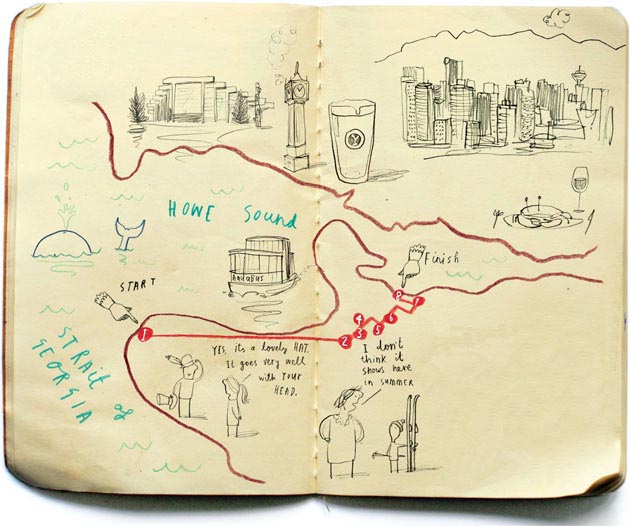 HOWE Sound
AquaBus
Finish
START
1
2
3
4
5
6
7
8
STRAIT of
GEORGIA
YES, its a lovely HAT.
It goes very well
with YOUR
HEAD.
I don't
think it
snows here
in summer